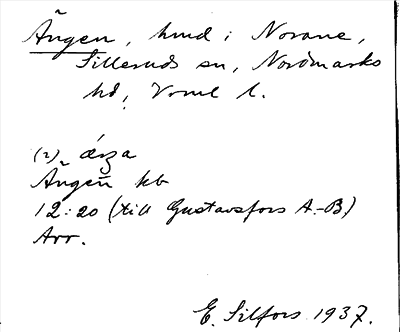 Ängen, hmd i Norane,
Silleruds sn, Nordmarks
hd, Vrml l.
(2)
Ängen kb
12:20 (till Gustavsfors A.-B.)
Arr.
E. Silfors 1937.